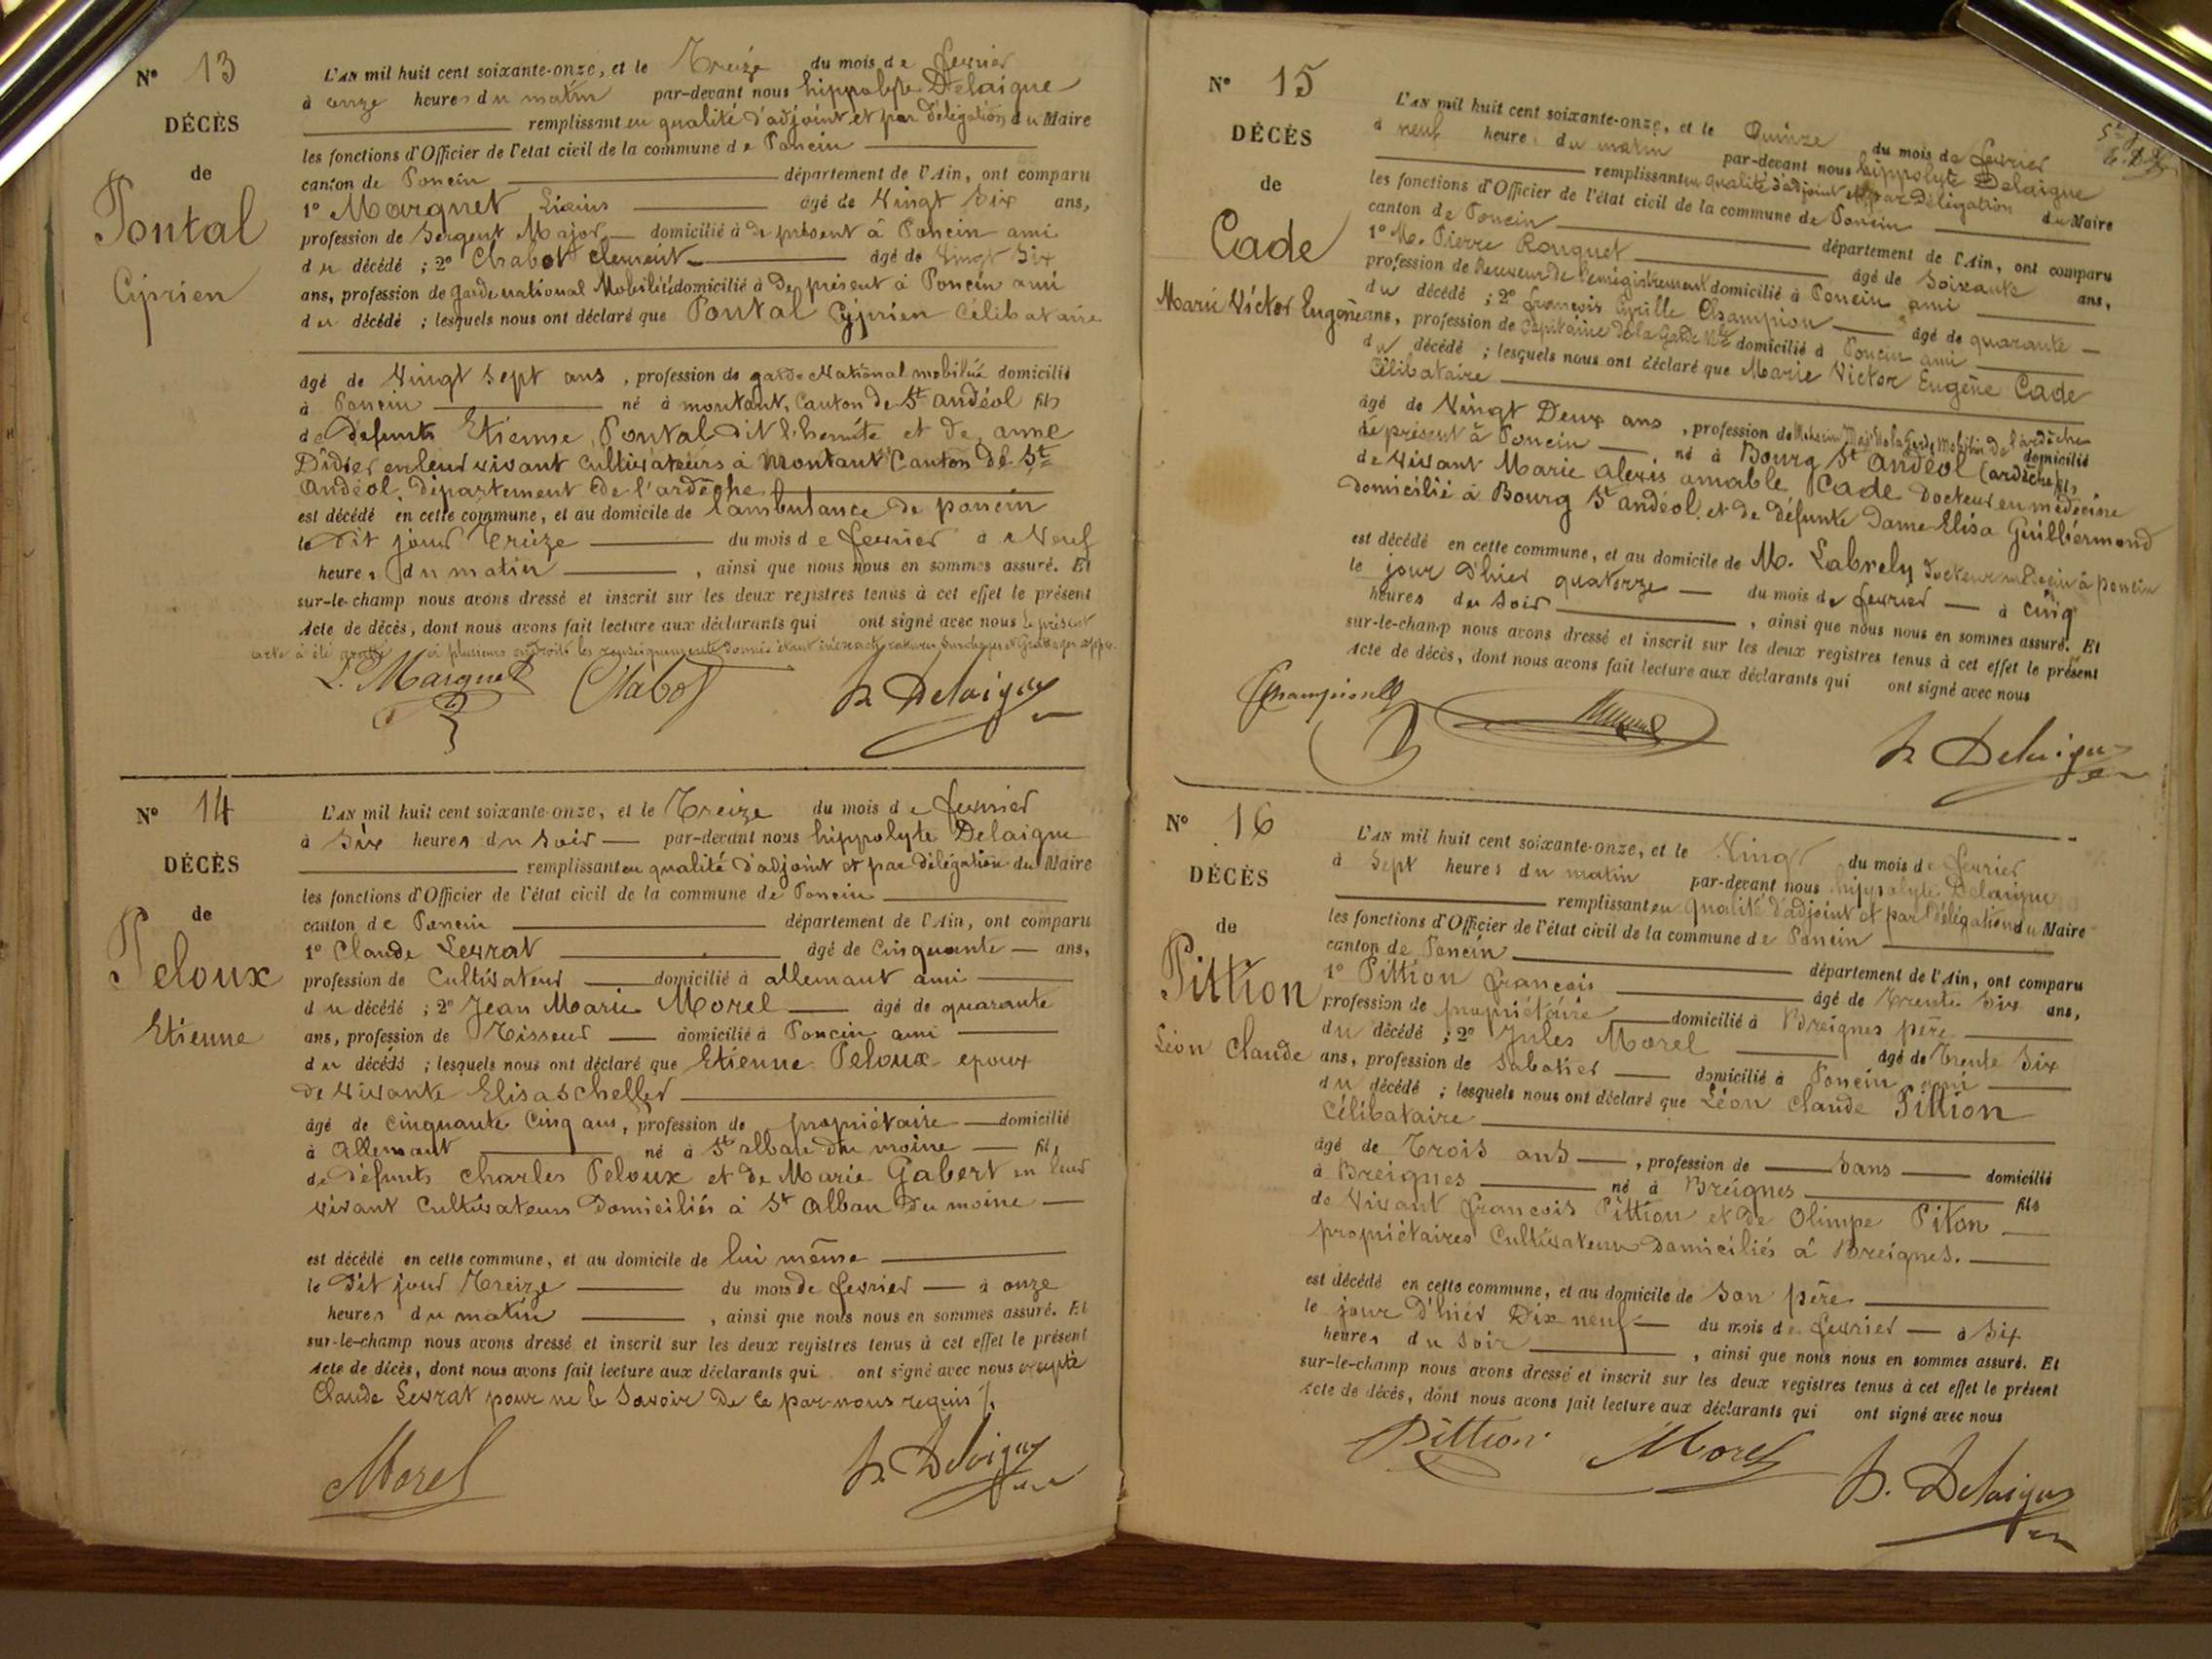 N° 13
DÉCÈS
de
Pontal
Cyprien
L'AN mil huit cent soixante-onze, et le Treize du mois de fevrier
à onze heures du matin par-devant nous hippolyte Delaigue
remplissant en qualité d'adjoint et par délégation du Maire
les fonctions d'Officier de l'état civil de la commune de Poncin
canton de Poncin département de l'Ain, ont comparu
1° Marquet Licius âgé de Vingt Six ans,
profession de Sergent Major domicilié à de présent à Poncin ami
du décédé ; 2° Chabot Clement âgé de Vingt Six
ans, profession de garde national Mobilisé domicilié à De présent à Poncin ami
du décédé ; lesquels nous ont déclaré que Pontal Cyprien Célibataire
âgé de Vingt Sept ans, profession de garde National mobilisé domicilié
à Poncin né à montant, Canton de St andéol fils
de Defunts Etienne Pontal dit l'hemite et de anne
Didier en leur vivant Cultivateurs à Montant Canton de St
Andéol, Département de l'ardèche
est décédé en cette commune, et au domicile de l'ambulance de poncin
le Dit jour treize du mois de fevrier à Neuf
heures du matin, ainsi que nous nous en sommes assuré. Et
sur-le-champ nous avons dressé et inscrit sur les deux registres tenus à cet effet le présent
Acte de décès, dont nous avons fait lecture aux déclarants qui ont signé avec nous Le présent
acte à été gratté en plusieurs endroits les renseignements donnés étant inexacts ratures Surcharges et Grattages app.
L. Marquet Chabot h Delaigue
N° 14
DÉCÈS
de
Peloux
Etienne
L'AN mil huit cent soixante-onze, et le Treize du mois de fevrier
à Six heures du Soir par-devant nous hippolyte Delaigue
remplissant en qualité d'adjoint et par délégation du Maire
les fonctions d'Officier de l'état civil de la commune de Poncin
canton de Poncin département de l'Ain, ont comparu
1° Claude Levrat âgé de Cinquante ans,
profession de Cultivateur domicilié à allemant ami
du décédé ; 2° Jean Marie Morel âgé de quarante
ans, profession de Tisseur domicilié à Poncin ami
du décédé ; lesquels nous ont déclaré que Etienne Peloux epoux
de vivante Elisa scheller
âgé de Cinquante Cinq ans, profession de propriétaire domicilié
à Allemant né à St alban du moine fils
de Défunts Charles Peloux et de Marie Gabert en leur
vivant Cultivateurs Domiciliés à St Alban du moine
est décédé en cette commune, et au domicile de lui même
le Dit jour Treize du mois de fevrier à onze
heures du matin, ainsi que nous nous en sommes assuré. Et
sur-le-champ nous avons dressé et inscrit sur les deux registres tenus à cet effet le présent
Acte de décès, dont nous avons fait lecture aux déclarants qui ont signé avec nous excepté
Claude Levrat pour ne le Savoir De ce par nous requis
Morel h. Delaigue
N° 15
DÉCÈS
de
Cade
Marie Victor Eugène
L'AN mil huit cent soixante-onze, et le Quinze du mois de fevrier
à neuf heures du matin par-devant nous hippolyte Delaigue
remplissant en qualité d'adjoint et par Délégation du Maire
les fonctions d'Officier de l'état civil de la commune de Poncin
canton de Poncin département de l'Ain, ont comparu
1° M. Pierre Rouquet âgé de Soixante ans,
profession de Receveur De l'enregistrement domicilié à Poncin ami
du décédé ; 2° francois Cyrille Champion âgé de quarante
ans, profession de Capitaine De la Garde Nle domicilié à Poncin ami
du décédé ; lesquels nous ont déclaré que Marie Victor Eugène Cade
Célibataire
âgé de Vingt Deux ans, profession de Médecin Maj. de la Garde Mobilisé de l'ardèche domicilié
de présent à Poncin né à Bourg St Andéol (ardèche) fils
de vivant Marie alexis amable Cade Docteur en médecine
Domicilié à Bourg St andéol, et de Défunte Dame Elisa Guilhermond
est décédé en cette commune, et au domicile de M. Labrely Docteur médecin à poncin
le jour d'hier quatorze du mois de fevrier à Cinq
heures du Soir, ainsi que nous nous en sommes assuré. Et
sur-le-champ nous avons dressé et inscrit sur les deux registres tenus à cet effet le présent
Acte de décès, dont nous avons fait lecture aux déclarants qui ont signé avec nous
Champion h Delaigue
N° 16
DÉCÈS
de
Pittion
Léon Claude
L'AN mil huit cent soixante-onze, et le Vingt du mois de fevrier
à Sept heures du matin par-devant nous hippolyte Delaigue
remplissant en qualité d'adjoint et par délégation du Maire
les fonctions d'Officier de l'état civil de la commune de Poncin
canton de Poncin département de l'Ain, ont comparu
1° Pittion francois âgé de Trente Six ans,
profession de propriétaire domicilié à Breignes père
du décédé ; 2° Jules Morel âgé de Trente Six
ans, profession de Sabotier domicilié à Poncin ami
du décédé ; lesquels nous ont déclaré que Léon Claude Pittion
Célibataire
âgé de Trois ans, profession de Sans domicilié
à Breignes né à Breignes fils
de Vivant francois Pittion et de Olimpe Piton
propriétaires Cultivateurs Domiciliés à Breignes.
est décédé en cette commune, et au domicile de Son père
le jour D'hier Dix neuf du mois de fevrier à Six
heures du Soir, ainsi que nous nous en sommes assuré. Et
sur-le-champ nous avons dressé et inscrit sur les deux registres tenus à cet effet le présent
Acte de décès, dont nous avons fait lecture aux déclarants qui ont signé avec nous
Pittion Morel h. Delaigue